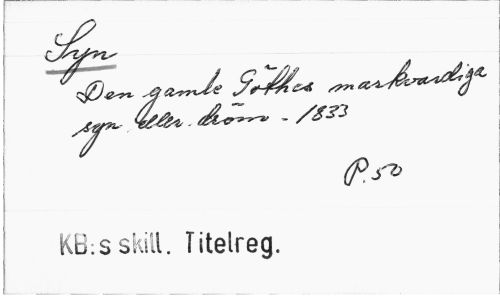 Syn
Den gamle Göthes markvardiga
syn eller dröm - 1833
P. 50
KB:s skill. Titelreg.